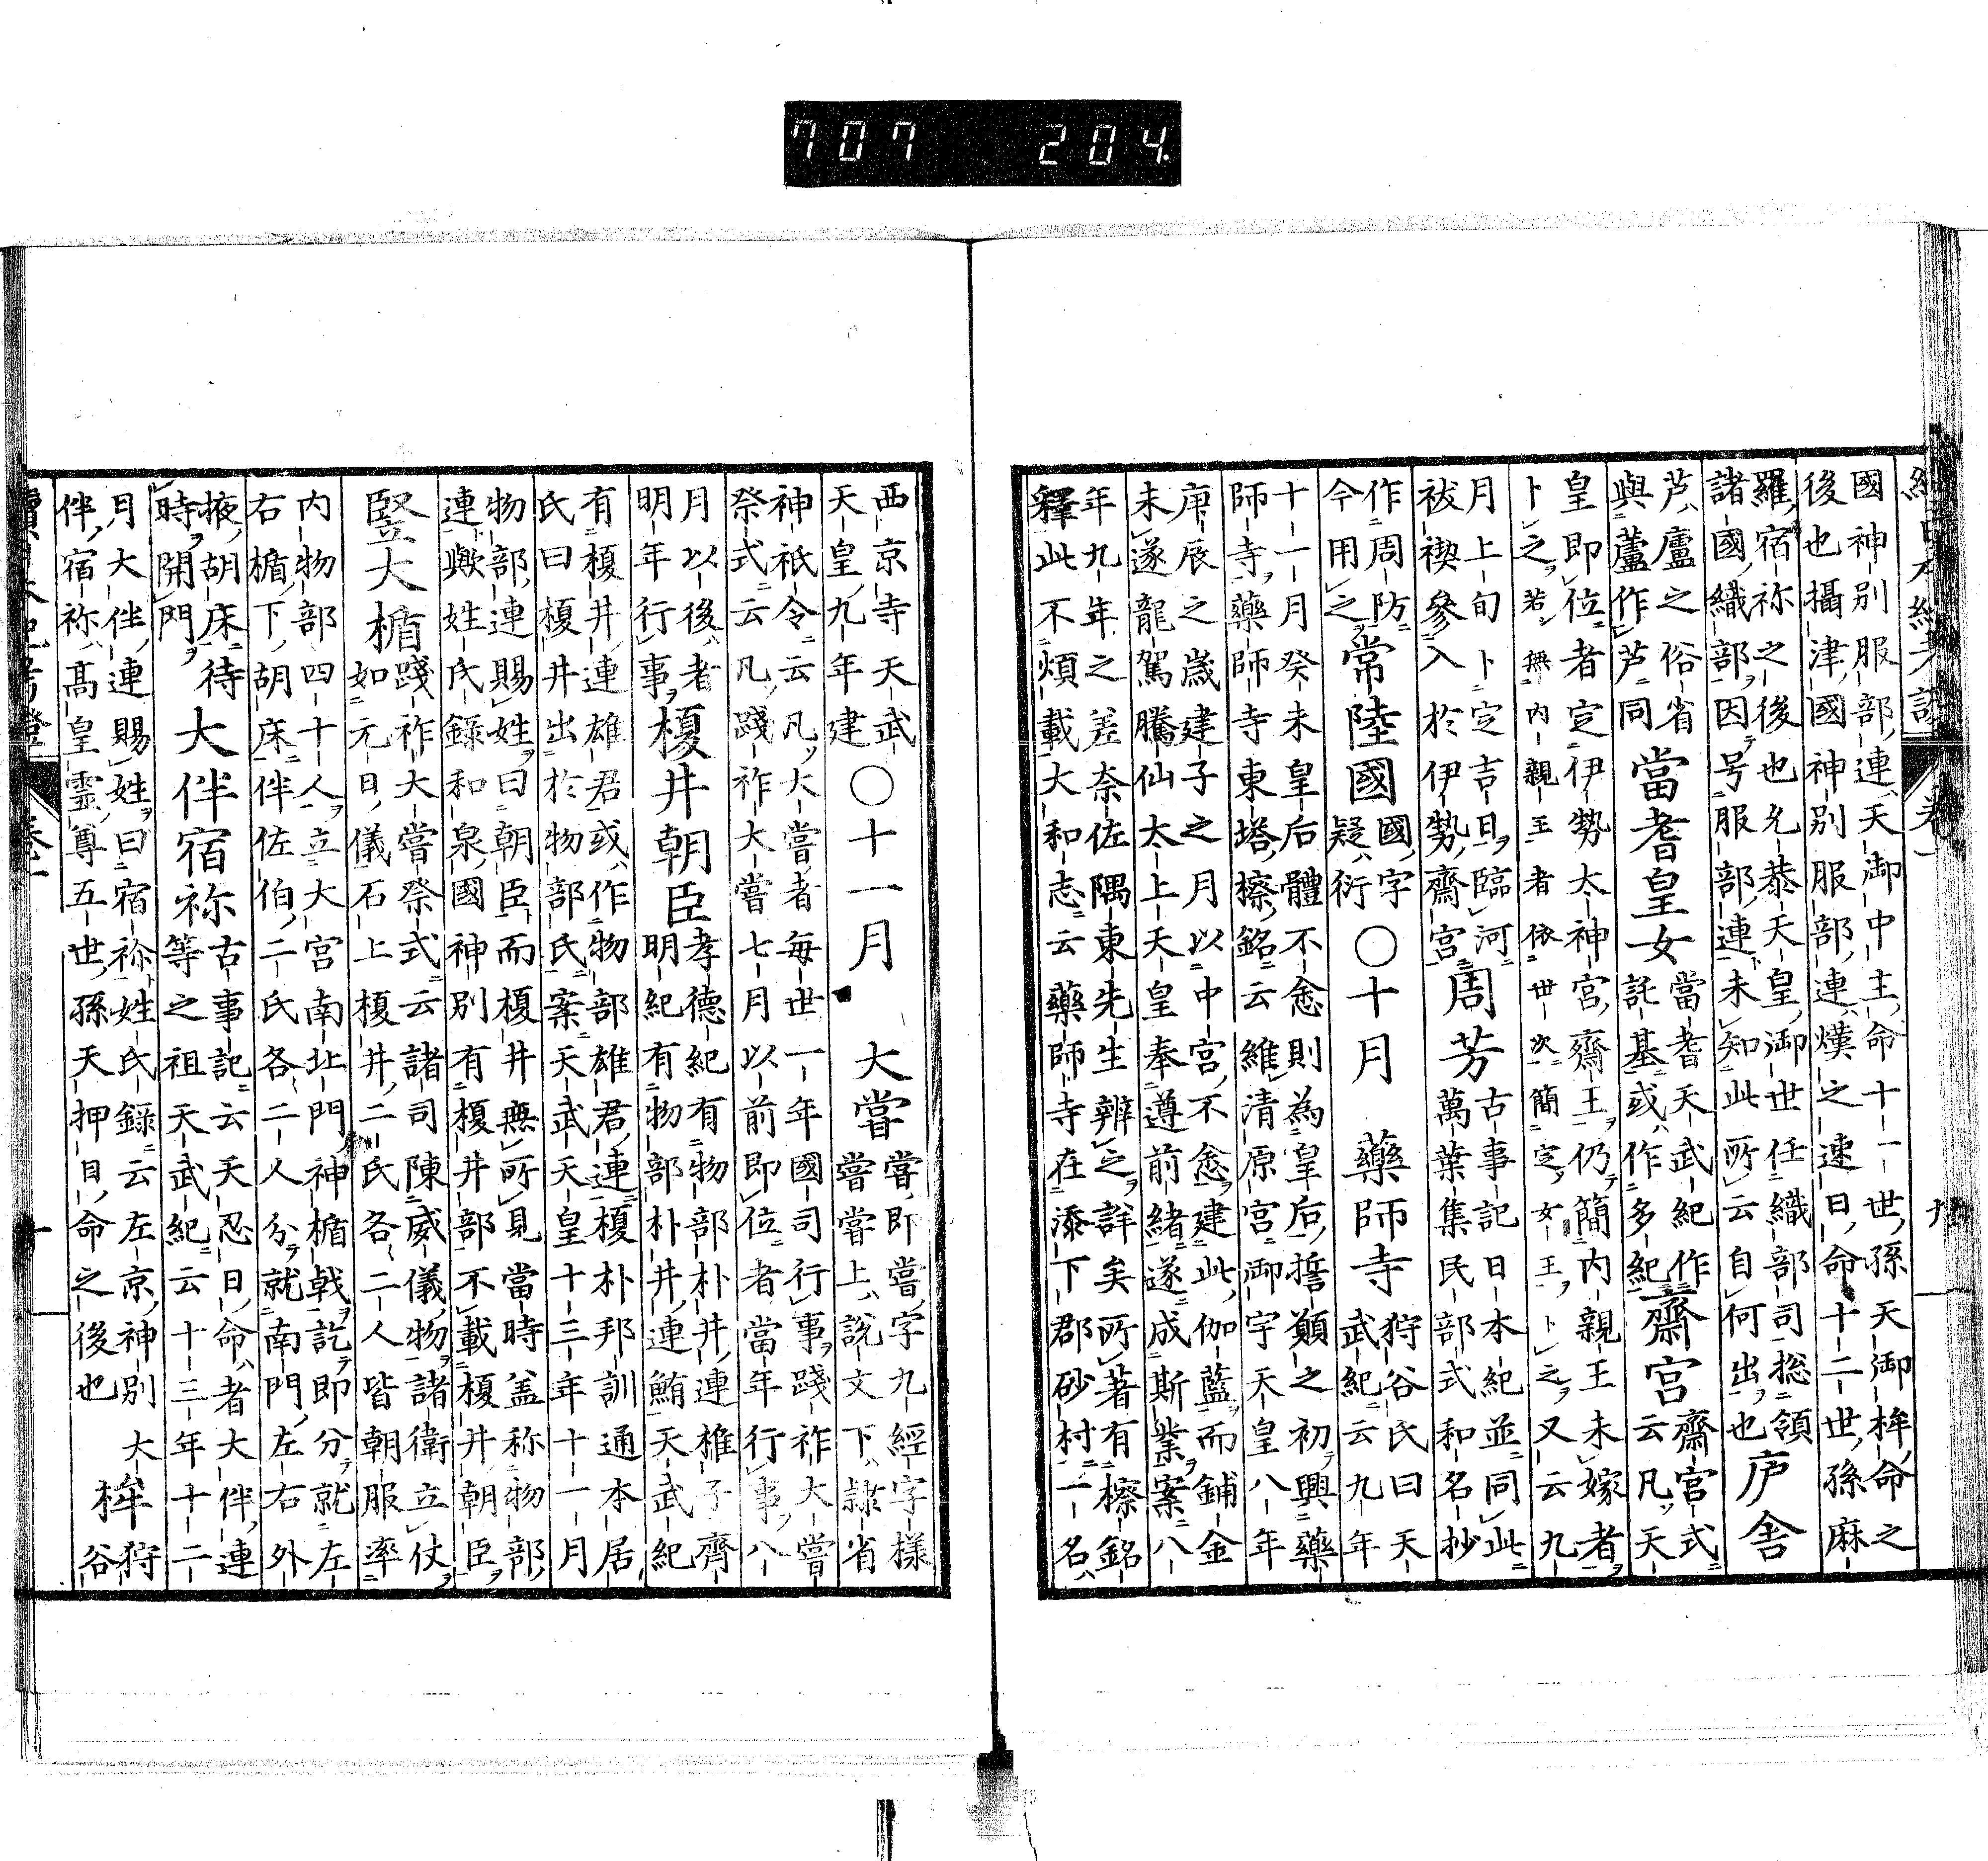 707 204.
國神別服部連天御中主命十一世孫天御桙命之
後也攝津國神別服部連熯之速日命十二世孫麻
羅宿祢之後也允恭天皇御世任織部司揔領
諸國織部因号服部連未知此所云自何出也庐舍
芦廬之俗省
與蘆作芦同當耆皇女當耆天武紀作
託基或作多紀齋宮齋宮式
云凡天
皇即位者定伊勢太神宮齋王仍簡内親王未嫁者
卜之若無内親王者依世次簡定女王卜之又云九
月上旬卜定吉日臨河
祓禊參入於伊勢齋宮周芳古事記日本紀並同此
萬葉集民部式和名抄
作周防
今用之常陸國國字
疑衍〇十月 藥師寺狩谷氏曰天
武紀云九年
十一月癸未皇后體不悆則為皇后誓願之初興藥
師寺藥師寺東塔檫銘云維清原宮御宇天皇八年
庚辰之歳建子之月以中宮不悆建此伽藍而鋪金
未遂龍駕騰仙太上天皇奉遵前緒遂成斯業案八
年九年之差奈佐隅東先生辨之詳矣所著有檫銘
釋此不煩載大和志云藥師寺在添下郡砂村一名
西京寺天武
天皇九年建〇十一月 大嘗嘗即嘗字九經字樣
嘗嘗上說文下隷省
神祇令云凡大嘗者毎世一年國司行事踐祚大嘗
祭式云凡踐祚大嘗七月以前即位者當年行事八
月以後者
明年行事榎井朝臣孝德紀有物部朴井連椎子齊
明紀有物部朴井連鮪天武紀
有榎井連雄君或作物部雄君連榎朴邦訓通本居
氏曰榎井出於物部氏案天武天皇十三年十一月
物部連賜姓曰朝臣而榎井無所見當時盖称物部
連歟姓氏錄和泉國神別有榎井部不載榎井朝臣
豎大楯踐祚大嘗祭式云諸司陳威儀物諸衛立仗
如元日儀石上榎井二氏各二人皆朝服率
内物部四十人立大宮南北門神楯戟訖即分就左
右楯下胡床伴佐伯二氏各二人分就南門左右外
掖胡床待
時開門大伴宿祢古事記云天忍日命者大伴連
等之祖天武紀云十三年十二
月大伴連賜姓曰宿祢姓氏錄云左京神別大
伴宿祢高皇靈尊五世孫天押日命之後也 桙狩
谷